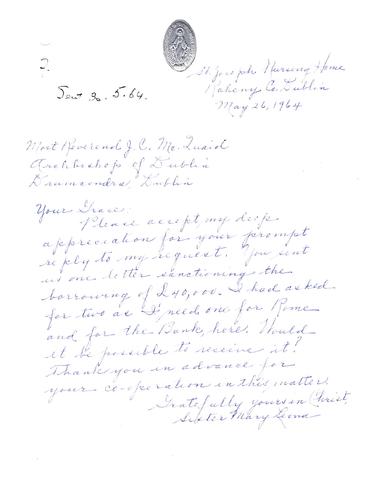 Sent 30.5.64.
St. Joseph Nursing Home
Raheny Co. Dublin
May 26, 1964
Most Reverend J. C. Mc. Quaid
Archbishop of Dublin
Drumcondra, Dublin
Your Grace:
Please accept my deep
appreciation for your prompt
reply to my request. You sent
us one letter sanctioning the
borrowing of £40,000. I had asked
for two as I need one for Rome
and for the Bank, here. Would
it be possible to receive it?
Thank you in advance for
your co-operation in this matter.
Gratefully yours in Christ,
Sister Mary Leona